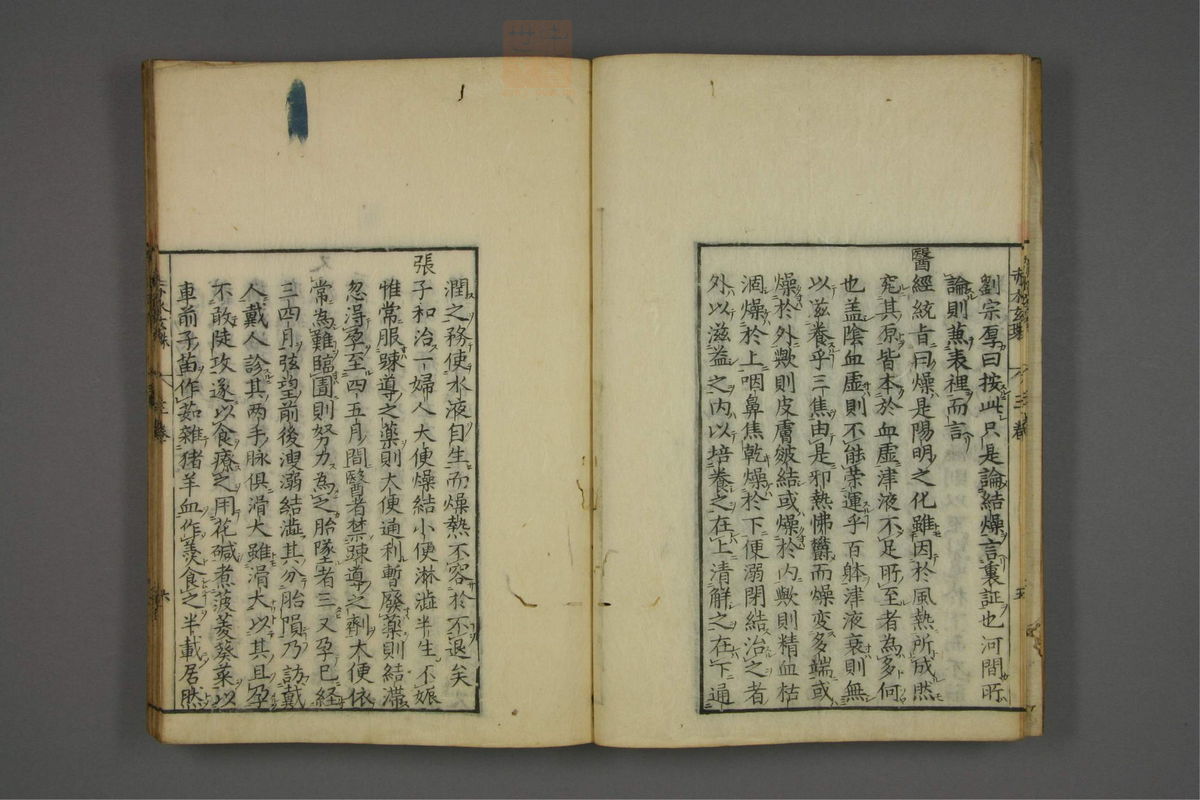 劉宗厚曰按此只是論結燥言裏証也河間所
論則蒸表裡而言
醫經統旨曰燥是陽明之化雖因於風熱所成然
究其原皆本於血虛津液不足所至者為多何
也盖陰血虛則不能荣運乎百躰津液衰則無
以滋養乎三焦由是邪熱怫欝而燥变多端或
燥於外歟則皮膚皴結或燥於内歟則精血枯
涸燥於上咽鼻焦乾燥於下便溺閉結治之者
外以滋益之内以培養之在上清解之在下通
潤之務使水液自生而燥熱不容於不退矣
張子和治一婦人大便燥結小便淋澁半生不娠
惟常服踈導之薬則大便通利暫廢薬則結滯
忽得孕至四五月間醫者禁踈導之劑大便依
常為難臨圊則努力為之胎墜者三又孕已経
三四月弦望前後溲溺結澁其分胎隕乃訪戴
人戴人診其两手脉俱滑大雖滑大以其且孕
不敢陡攻遂以食療之用花碱煮菠菱葵菜以
車前子苗作茹雜猪羊血作羮食之半載居然
三卷
五